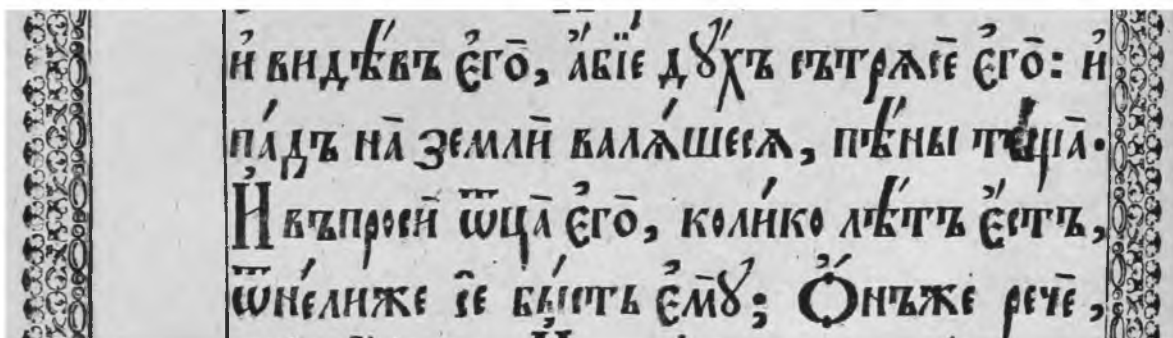 и҆ видѣ́въ є҆го̀, а҆́бїе дꙋ́хъ сътрѧсѐ є҆го̀: и҆
па́дъ на̀ землѝ валѧ́шесѧ, пѣ́ны те́ща̀.
И҆ въпросѝ ѿца̀ є҆го̀, коли́ко лѣ́тъ є҆́стъ,
ѿне́лиже сѐ бы́сть є҆мꙋ̀; Ѻ҆́нъже речѐ,